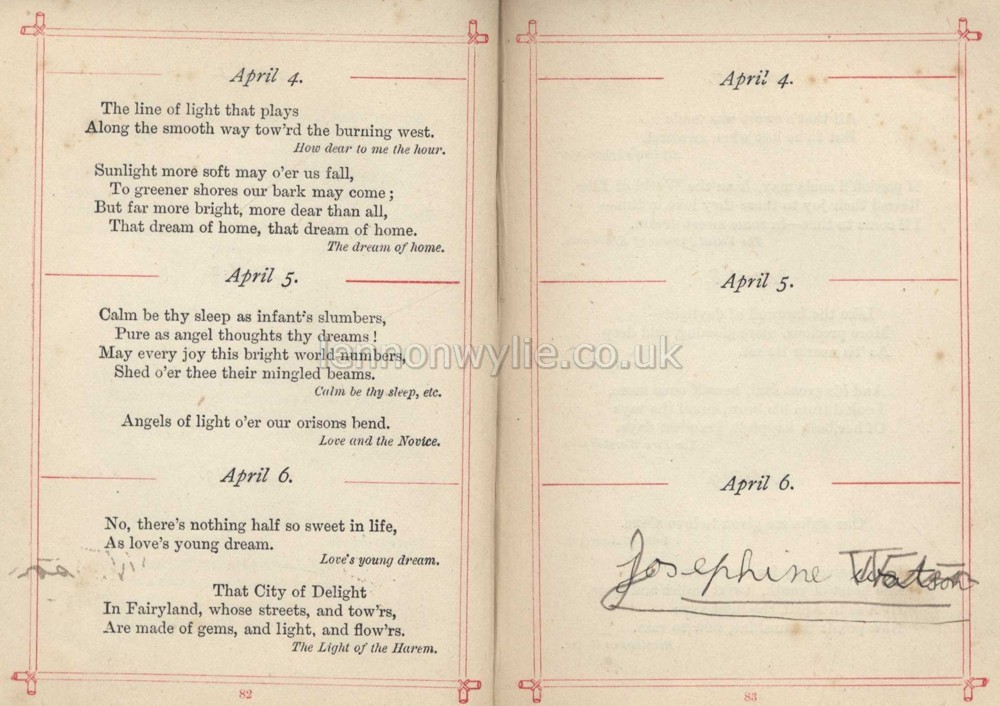 April 4.
The line of light that plays
Along the smooth way tow'rd the burning west.
How dear to me the hour.
Sunlight more soft may o'er us fall,
To greener shores our bark may come;
But far more bright, more dear than all,
That dream of home, that dream of home.
The dream of home.
April 5.
Calm be thy sleep as infant's slumbers,
Pure as angel thoughts thy dreams!
May every joy this bright world numbers,
Shed o'er thee their mingled beams.
Calm be thy sleep, etc.
Angels of light o'er our orisons bend.
Love and the Novice.
April 6.
No, there's nothing half so sweet in life,
As love's young dream.
Love's young dream.
That City of Delight
In Fairyland, whose streets, and tow'rs,
Are made of gems, and light, and flow'rs.
The Light of the Harem.
82
April 4.
April 5.
April 6.
Josephine Watson
83
lennonwylie.co.uk